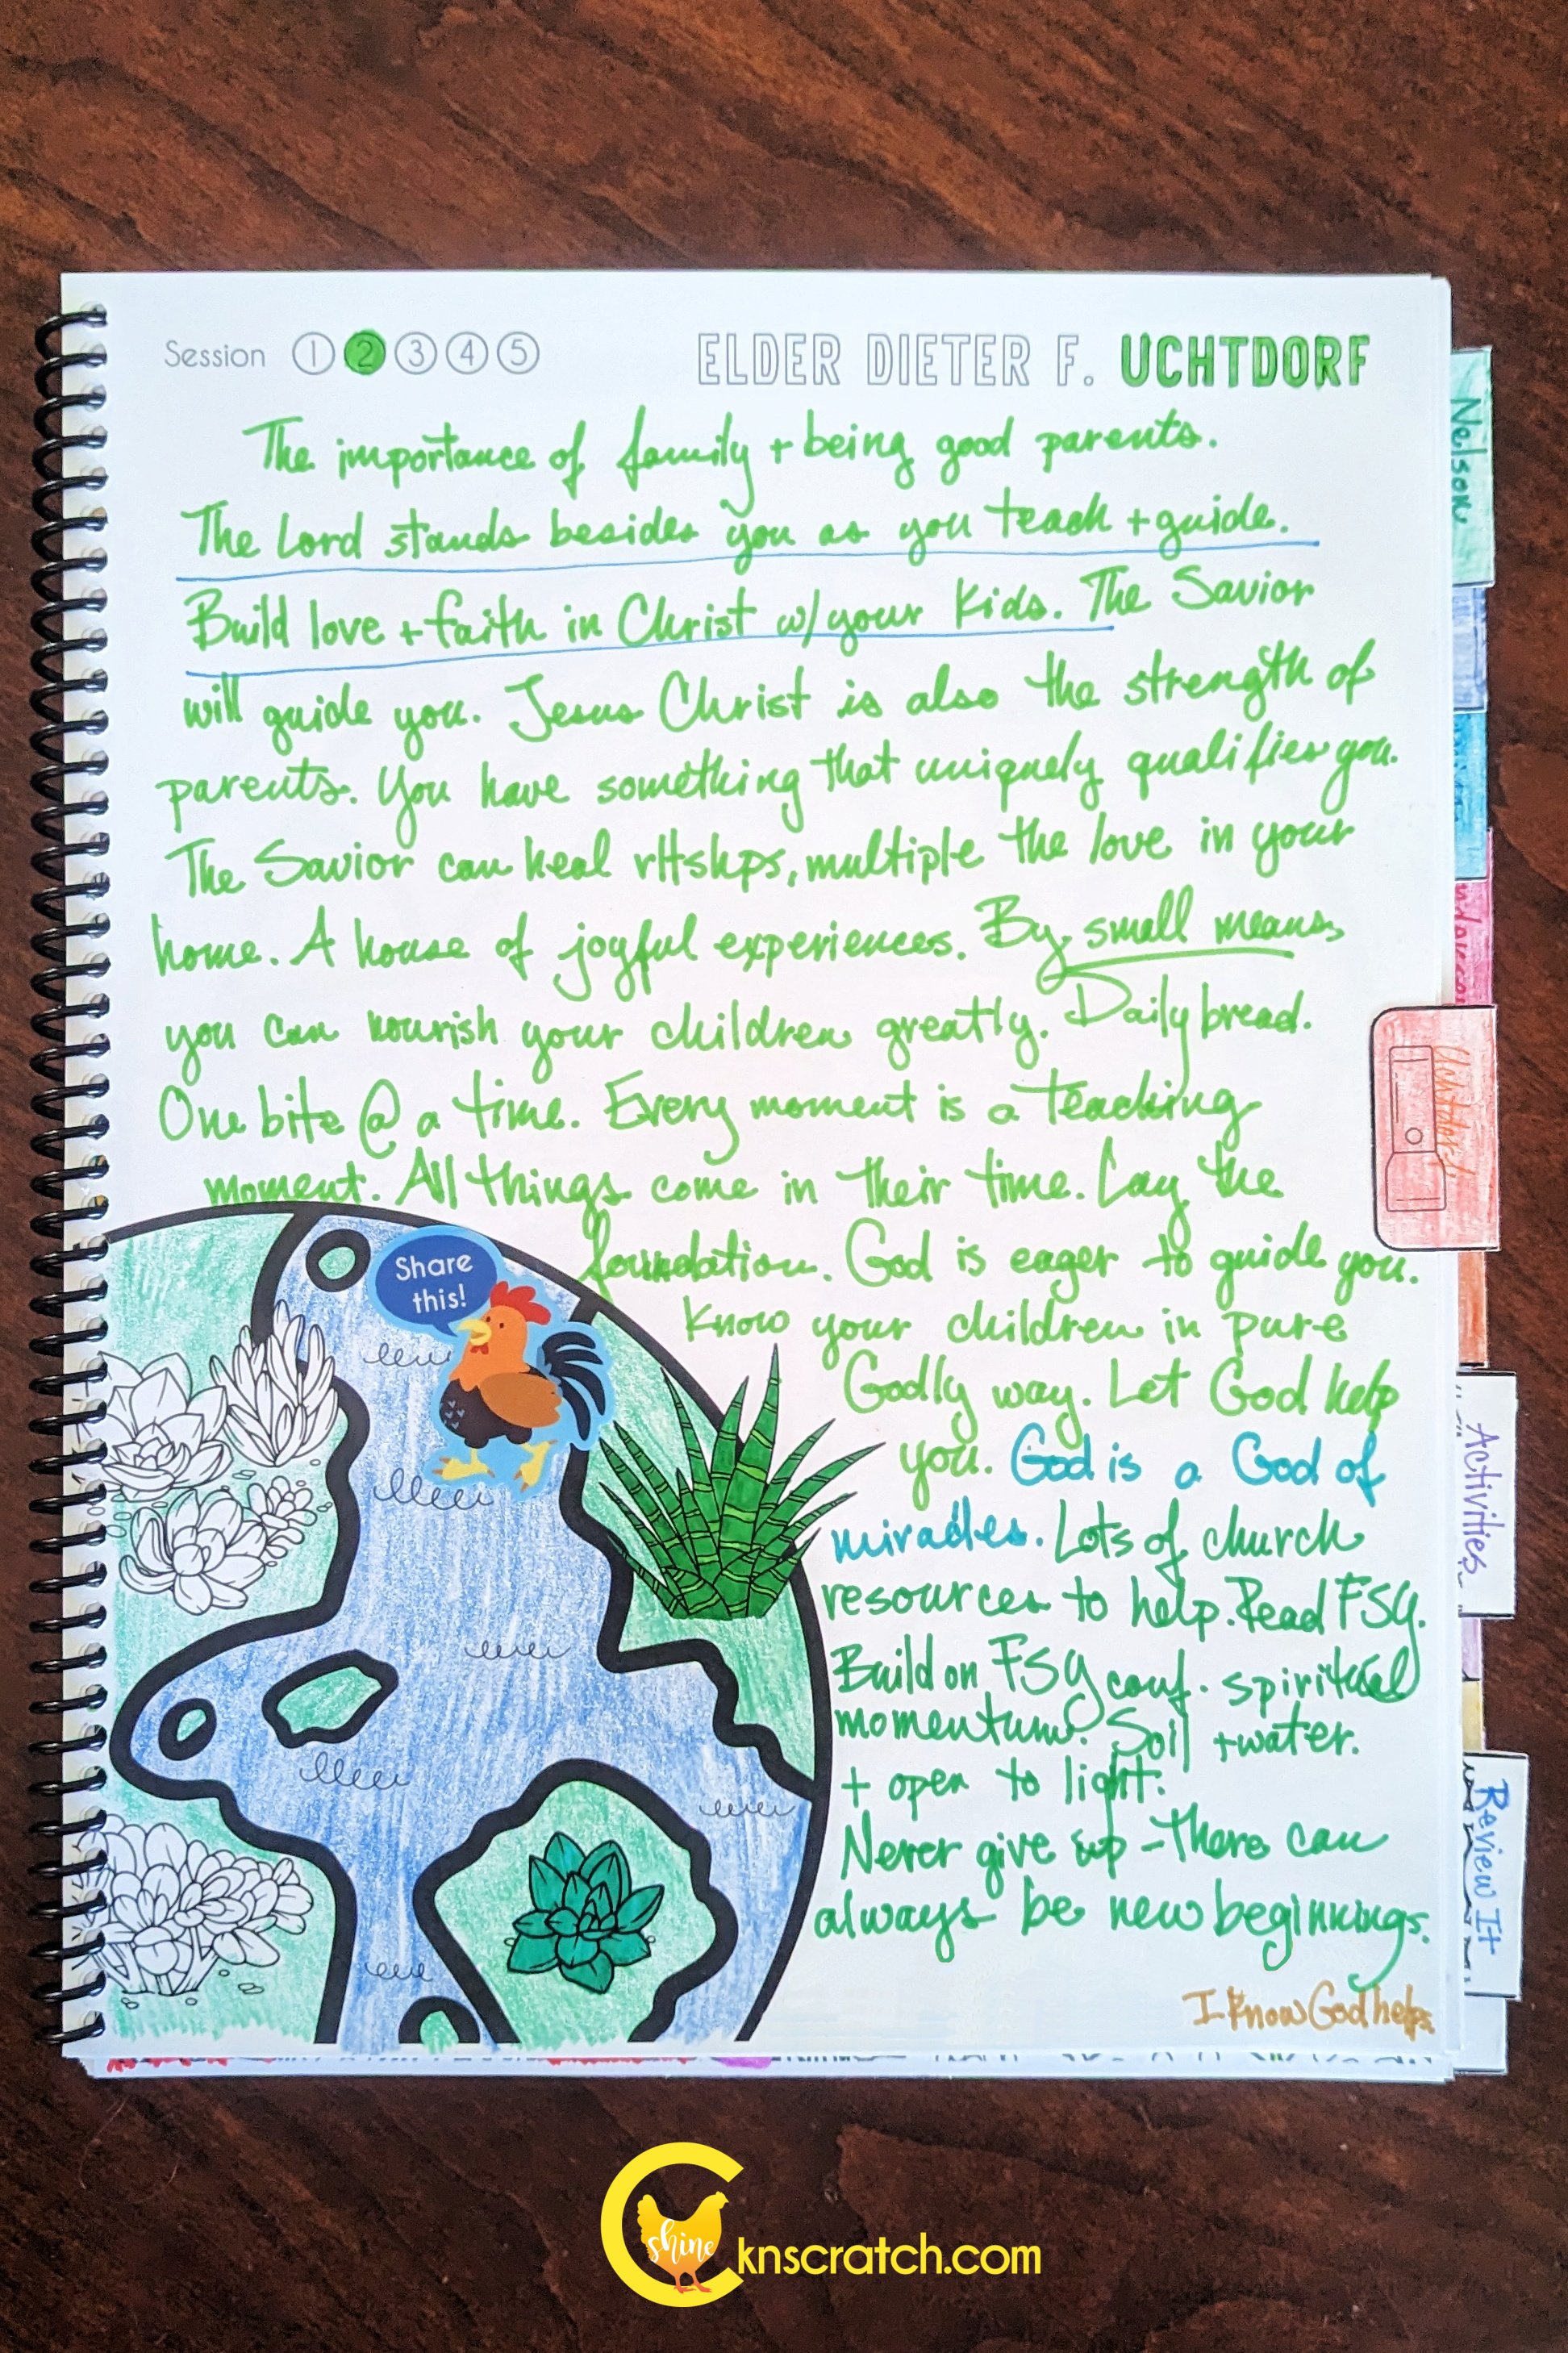 Session 1 2 3 4 5
ELDER DIETER F. UCHTDORF
The importance of family + being good parents.
The Lord stands besides you as you teach + guide.
Build love + faith in Christ w/ your kids. The Savior
will guide you. Jesus Christ is also the strength of
parents. You have something that uniquely qualifies you.
The Savior can heal rltshps, multiple the love in your
home. A house of joyful experiences. By small means,
you can nourish your children greatly. Daily bread.
One bite @ a time. Every moment is a teaching
moment. All things come in their time. Lay the
foundation. God is eager to guide you.
Know your children in pure
Godly way. Let God help
you. God is a God of
miracles. Lots of church
resources to help. Read FSY.
Build on FSY conf. spiritual
momentum. Soil + water.
+ open to light.
Never give up - there can
always be new beginnings.
I know God helps.
Share
this!
Nelson
Uchtdorf
Activities
Review It
shine
Cknscratch.com